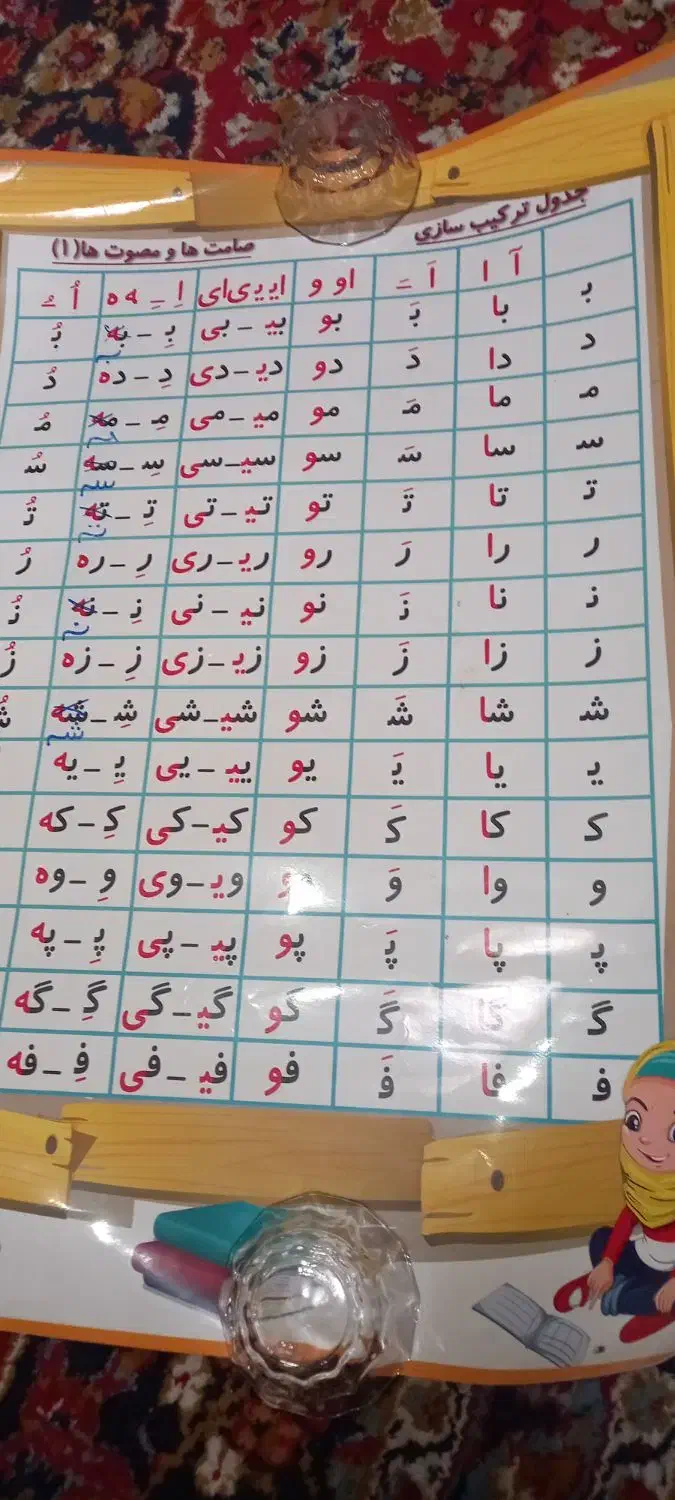 جدول ترکیب سازی
صامت ها و مصوت ها(۱)
آ ا اَ ـَ او و ایـ یـ ی ای اِ ـِ ـه ه اُ ـُ
بـ با بَـ بو بیـ – بی بِـ – به بُـ
د دا دَ دو دیـ – دی دِ – ده دُ
مـ ما مَـ مو میـ – می مِـ – مه مُـ
سـ سا سَـ سو سیـ – سی سِـ – سه سُـ
تـ تا تَـ تو تیـ – تی تِـ – ته تُـ
ر را رَ رو ریـ – ری رِ – ره رُ
نـ نا نَـ نو نیـ – نی نِـ – نه نُـ
ز زا زَ زو زیـ – زی زِ – زه زُ
شـ شا شَـ شو شیـ – شی شِـ – شه شُـ
یـ یا یَـ یو ییـ – یی یِـ – یه
کـ کا کَـ کو کیـ – کی کِـ – که
و وا وَ ویـ – وی وِ – وه
پـ پا پَـ پو پیـ – پی پِـ – په
گـ گا گَـ گو گیـ – گی گِـ – گه
فـ فا فَـ فو فیـ – فی فِـ – فه